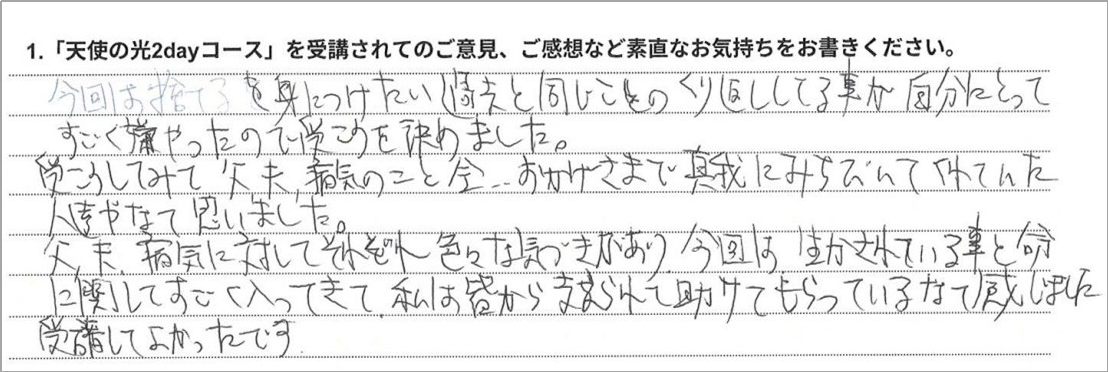 1.「天使の光2dayコース」を受講されてのご意見、ご感想など素直なお気持ちをお書きください。
今回は捨てるを身につけたい 過去と同じことのくり返ししてる事が自分にとって
すごく嫌やったので受こうを決めました。
受こうしてみて 父、夫、病気のこと全… おかげさまで真我にみちびいてくれていた
人達やなて思いました。
父、夫、病気に対してそれぞれ色々な気づきがあり、今回は生かされている事と命
に関してすごく入ってきて、私は皆から支えられて助けてもらっているなて感じました
受講してよかったです